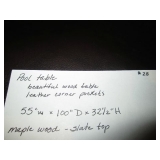 # 28
Pool table
beautiful wood table
leather corner pockets
55"W x 100"D x 32½"H
maple wood - slate top